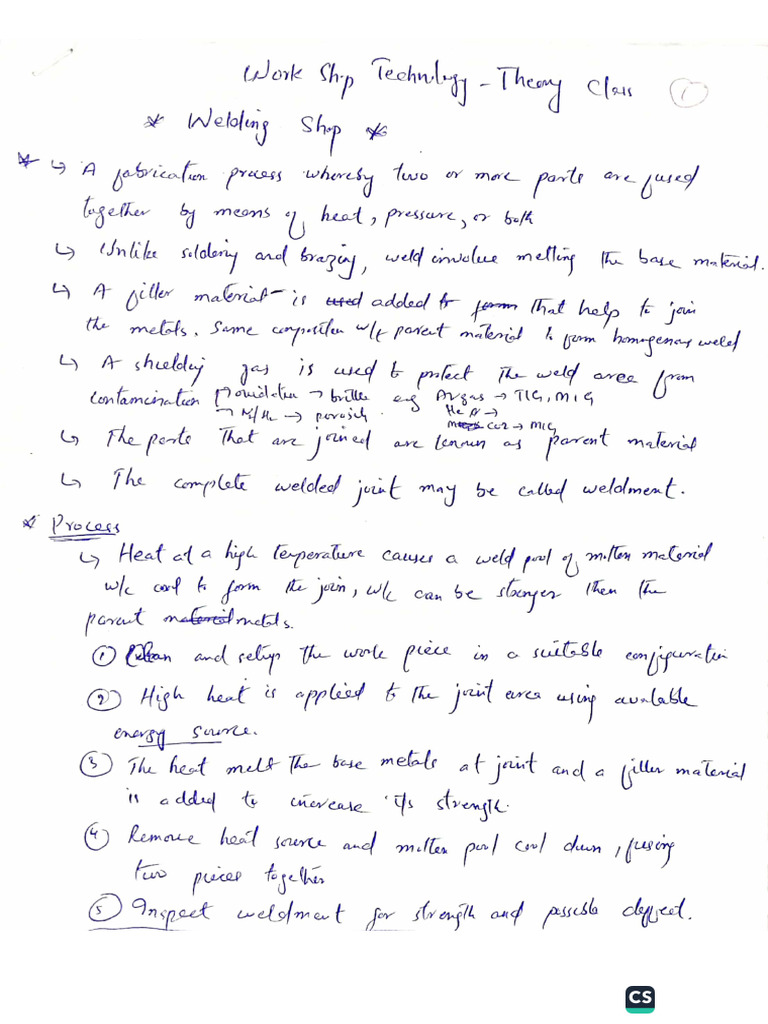 Work Shop Technology - Theory Class ①
* Welding Shop *
* ↳ A fabrication process whereby two or more parts are fused
together by means of heat, pressure, or both
↳ Unlike soldering and brazing, weld involve melting the base material.
↳ A filler material is used added to form that help to join
the metals. Same composition w/c parent material to form homogenous weld
↳ A shielding gas is used to protect the weld area from
contamination oxidation → brittle e.g Argas → TIG, MIG
→ N/He → porosity He →
CO2 → MIG
↳ The parts that are joined are known as parent material
↳ The complete welded joint may be called weldment.
* Process
↳ Heat at a high temperature causes a weld pool of molten material
w/c cool to form the join, w/c can be stronger then the
parent material metals.
① Clean and setup the work piece in a suitable configuration
② High heat is applied to the joint area using available
energy source.
③ The heat melt the base metals at joint and a filler material
is added to increase its strength.
④ Remove heat source and molten pool cool down, fusing
two pieces together
⑤ Inspect weldment for strength and possible deffect.
CS